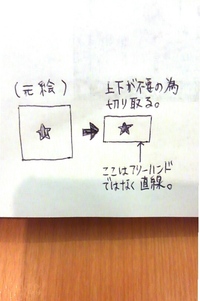 (元絵)
上下が不要の為
切り取る。
ここはフリーハンド
ではなく直線。